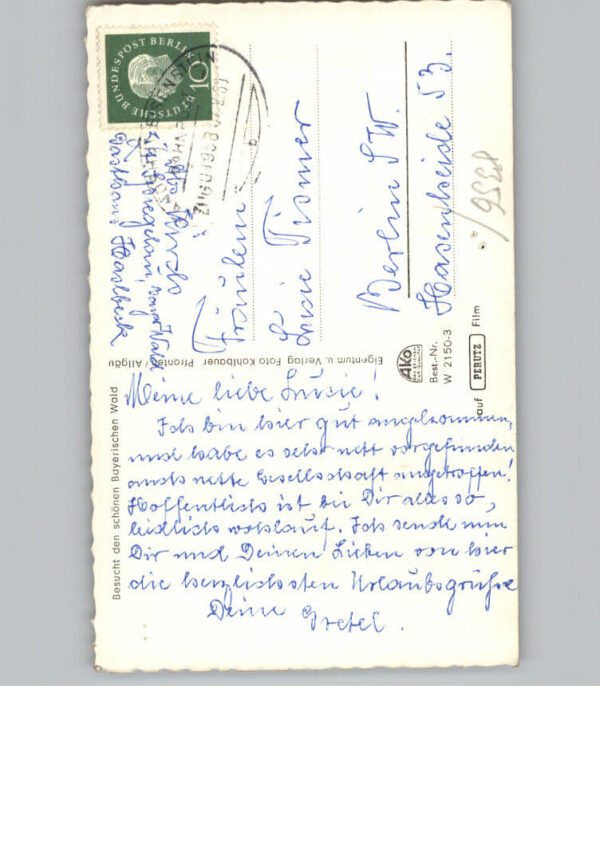 Besucht den schönen Bayerischen Wald
Meine liebe Lusie!
Ich bin hier gut angekommen,
und habe es sehr nett vorgefunden
auch nette Gesellschaft angetroffen!
Hoffentlich ist bei Dir alles so,
leidlich wohlauf. Ich sende nun
Dir und Deinen Lieben von hier
die herzlichsten Urlaubsgrüße
Deine
Gretel.
Eigentum u. Verlag Foto Kohlbauer Pfronten/Allgäu
AKO
Best.-Nr.
W 2150-3
auf PERUTZ Film
DEUTSCHE BUNDESPOST BERLIN
10
Gasthaus Haslbeck
Fräulein
Lusie Tismer
Berlin SW.
Hasenheide 53.